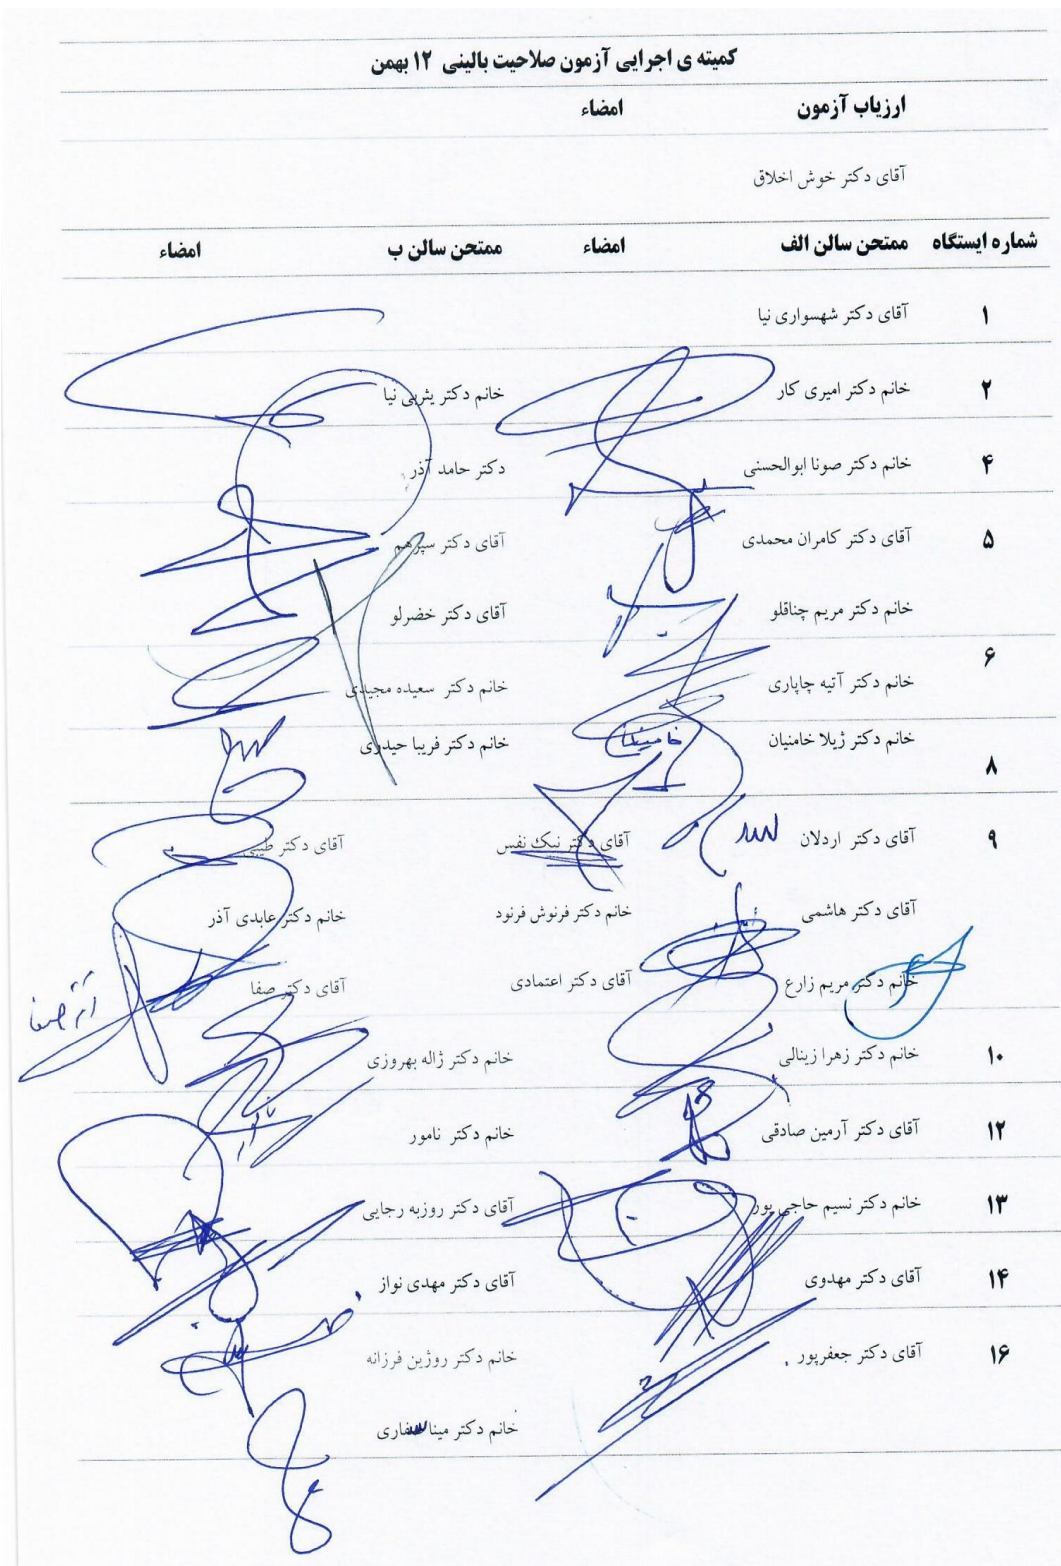 کمیته ی اجرایی آزمون صلاحیت بالینی ۱۲ بهمن
ارزیاب آزمون امضاء
آقای دکتر خوش اخلاق
شماره ایستگاه ممتحن سالن الف امضاء ممتحن سالن ب امضاء
۱ آقای دکتر شهسواری نیا
۲ خانم دکتر امیری کار خانم دکتر یثربی نیا
۴ خانم دکتر صونا ابوالحسنی دکتر حامد آذر
۵ آقای دکتر کامران محمدی آقای دکتر سپرهم
خانم دکتر مریم چناقلو آقای دکتر خضرلو
۶
خانم دکتر آتیه چاپاری خانم دکتر سعیده مجیدی
خانم دکتر ژیلا خامنیان خانم دکتر فریبا حیدری
۸
۹ آقای دکتر اردلان آقای دکتر نیک نفس آقای دکتر طیبی
آقای دکتر هاشمی خانم دکتر فرنوش فرنود خانم دکتر عابدی آذر
خانم دکتر مریم زارع آقای دکتر اعتمادی آقای دکتر صفا
۱۰ خانم دکتر زهرا زینالی خانم دکتر ژاله بهروزی
۱۲ آقای دکتر آرمین صادقی خانم دکتر نامور
۱۳ خانم دکتر نسیم حاجی پور آقای دکتر روزبه رجایی
۱۴ آقای دکتر مهدوی آقای دکتر مهدی نواز
۱۶ آقای دکتر جعفرپور خانم دکتر روژین فرزانه
خانم دکتر مینا